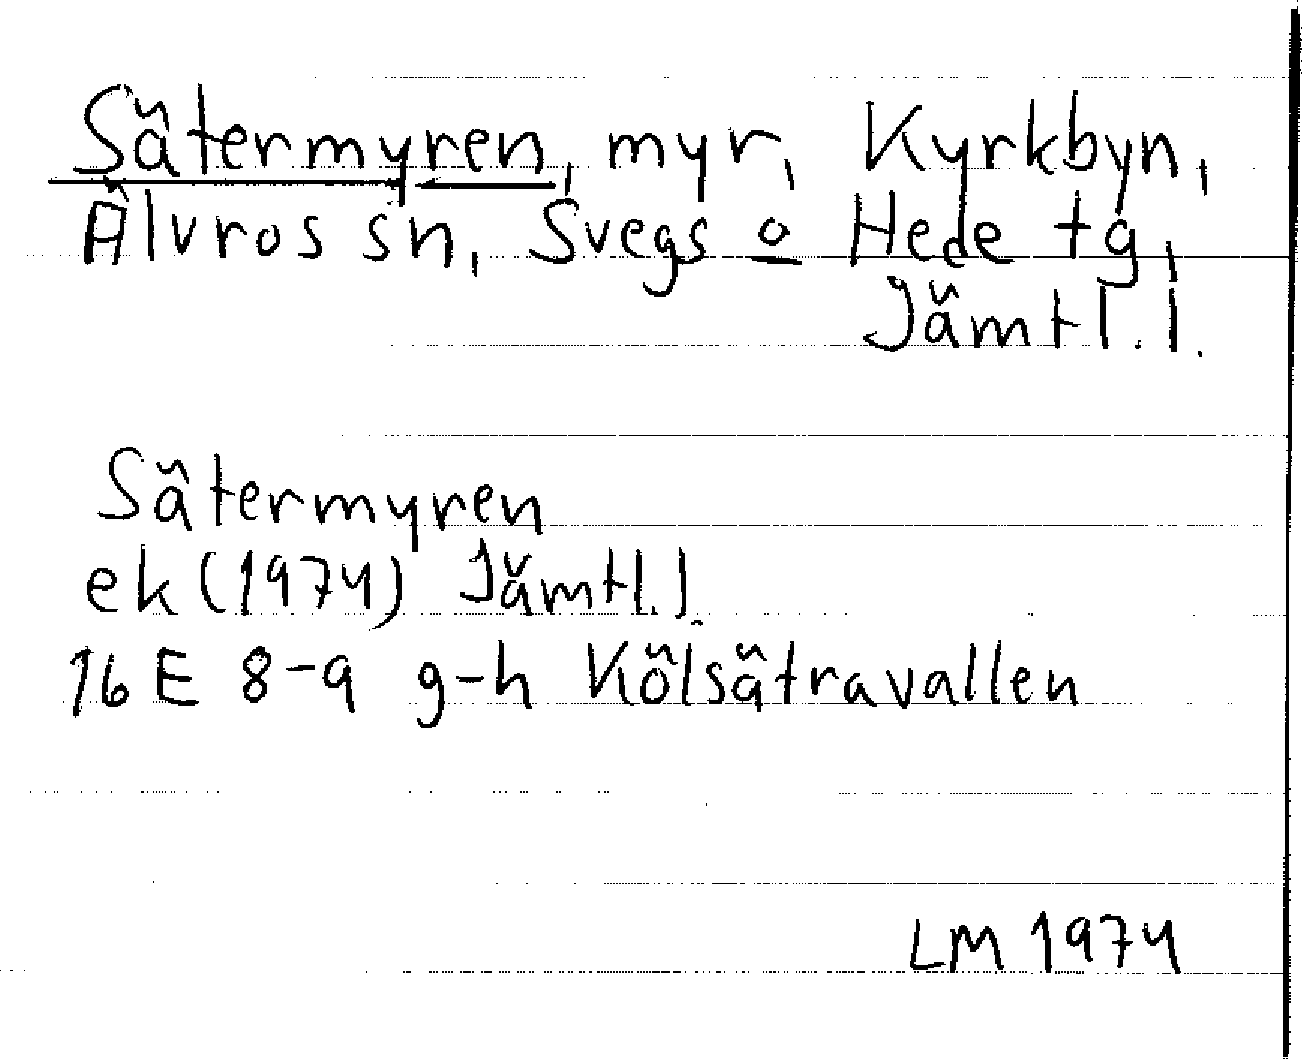 Sätermyren, myr, Kyrkbyn,
Älvros sn, Svegs o Hede tg,
Jämtl. l.
Sätermyren
ek (1974) Jämtl. l.
16 E 8-9 g-h Kölsätravallen
LM 1974